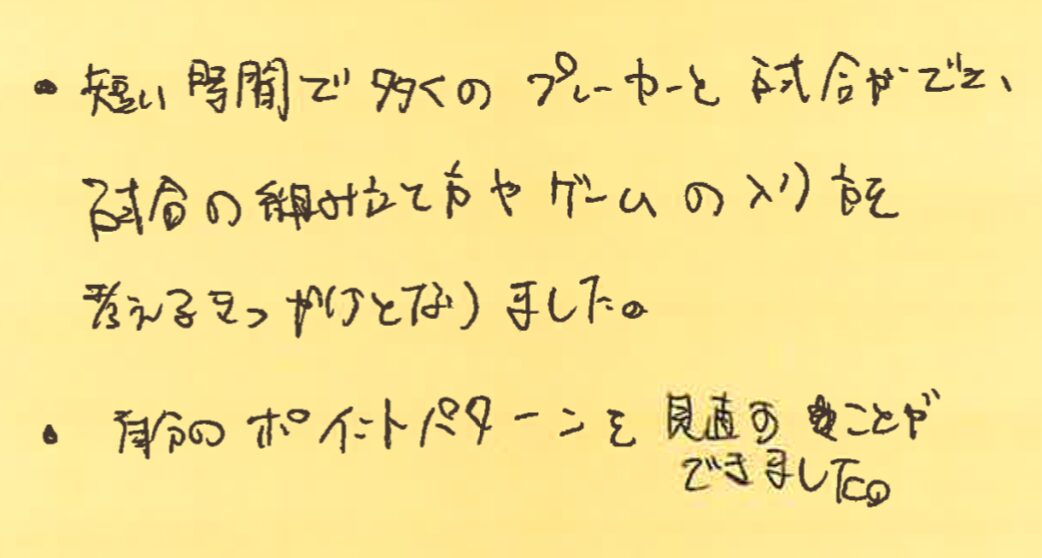 ・短い時間で多くのプレーヤーと試合ができ、
試合の組み立て方やゲームの入り方を
考えるきっかけとなりました。
・自分のポイントパターンを見直すことが
できました。